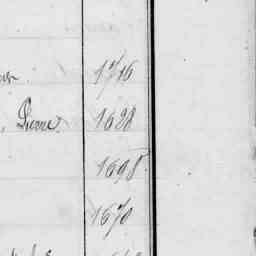 1716
, Pierre, 1628
1698
1670